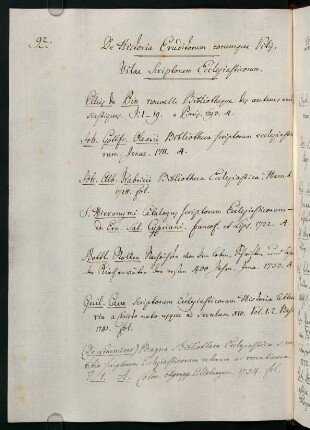 92.
De Historia Eruditorum eorumque Vitis.
Vitae Scriptorum Ecclesiasticorum.
Ellies du Pin nouvelle Bibliotheque des auteurs eccle-
siastiques. T. 1-19. a Paris. 4.
Joh. Gottfr. Olearii Bibliotheca Scriptorum ecclesiastico-
rum Jenae. 1711. 4.
Joh. Alb. Fabricii Bibliotheca Ecclesiastica. Hamb.
1718. fol.
S. Hieronymi Catalogus Scriptorum Ecclesiasticorum
ed. Ern. Sal. Cypriani. francof. et Lips. 1722. 4.
Nachrichten von dem Leben, Schriften und
der Kirchenväter der ersten 400 Jahre. Jena. 1732. 4.
Guil. Cave Scriptorum Ecclesiasticorum Historia litera-
ria a Christo nato usque ad Seculum XIV. Vol. 1. 2. Bas.
1741. fol.
Magna Bibliotheca Ecclesiastica s. no-
titia Scriptorum Ecclesiasticorum veterum ac recentiorum
T. 1. Colon. 1734. fol.